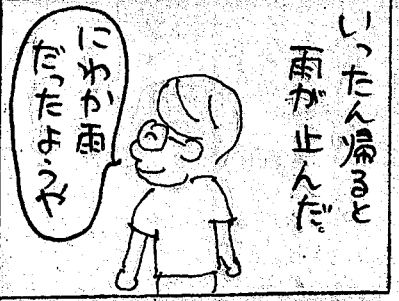 いったん帰ると
雨が止んだ。
にわか雨
だったようや